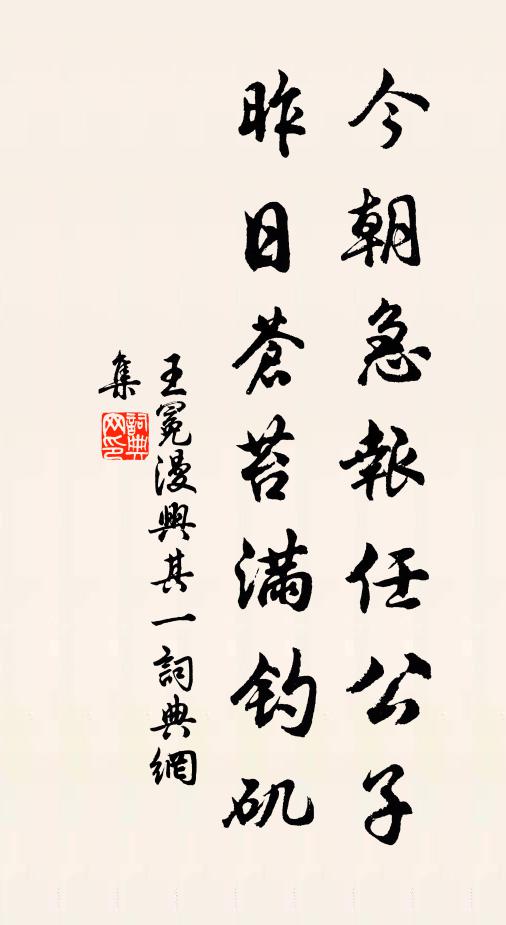 今朝急報任公子
昨日蒼苔满钓矶
王冕漫興其一詞典網
集
詞典
网印